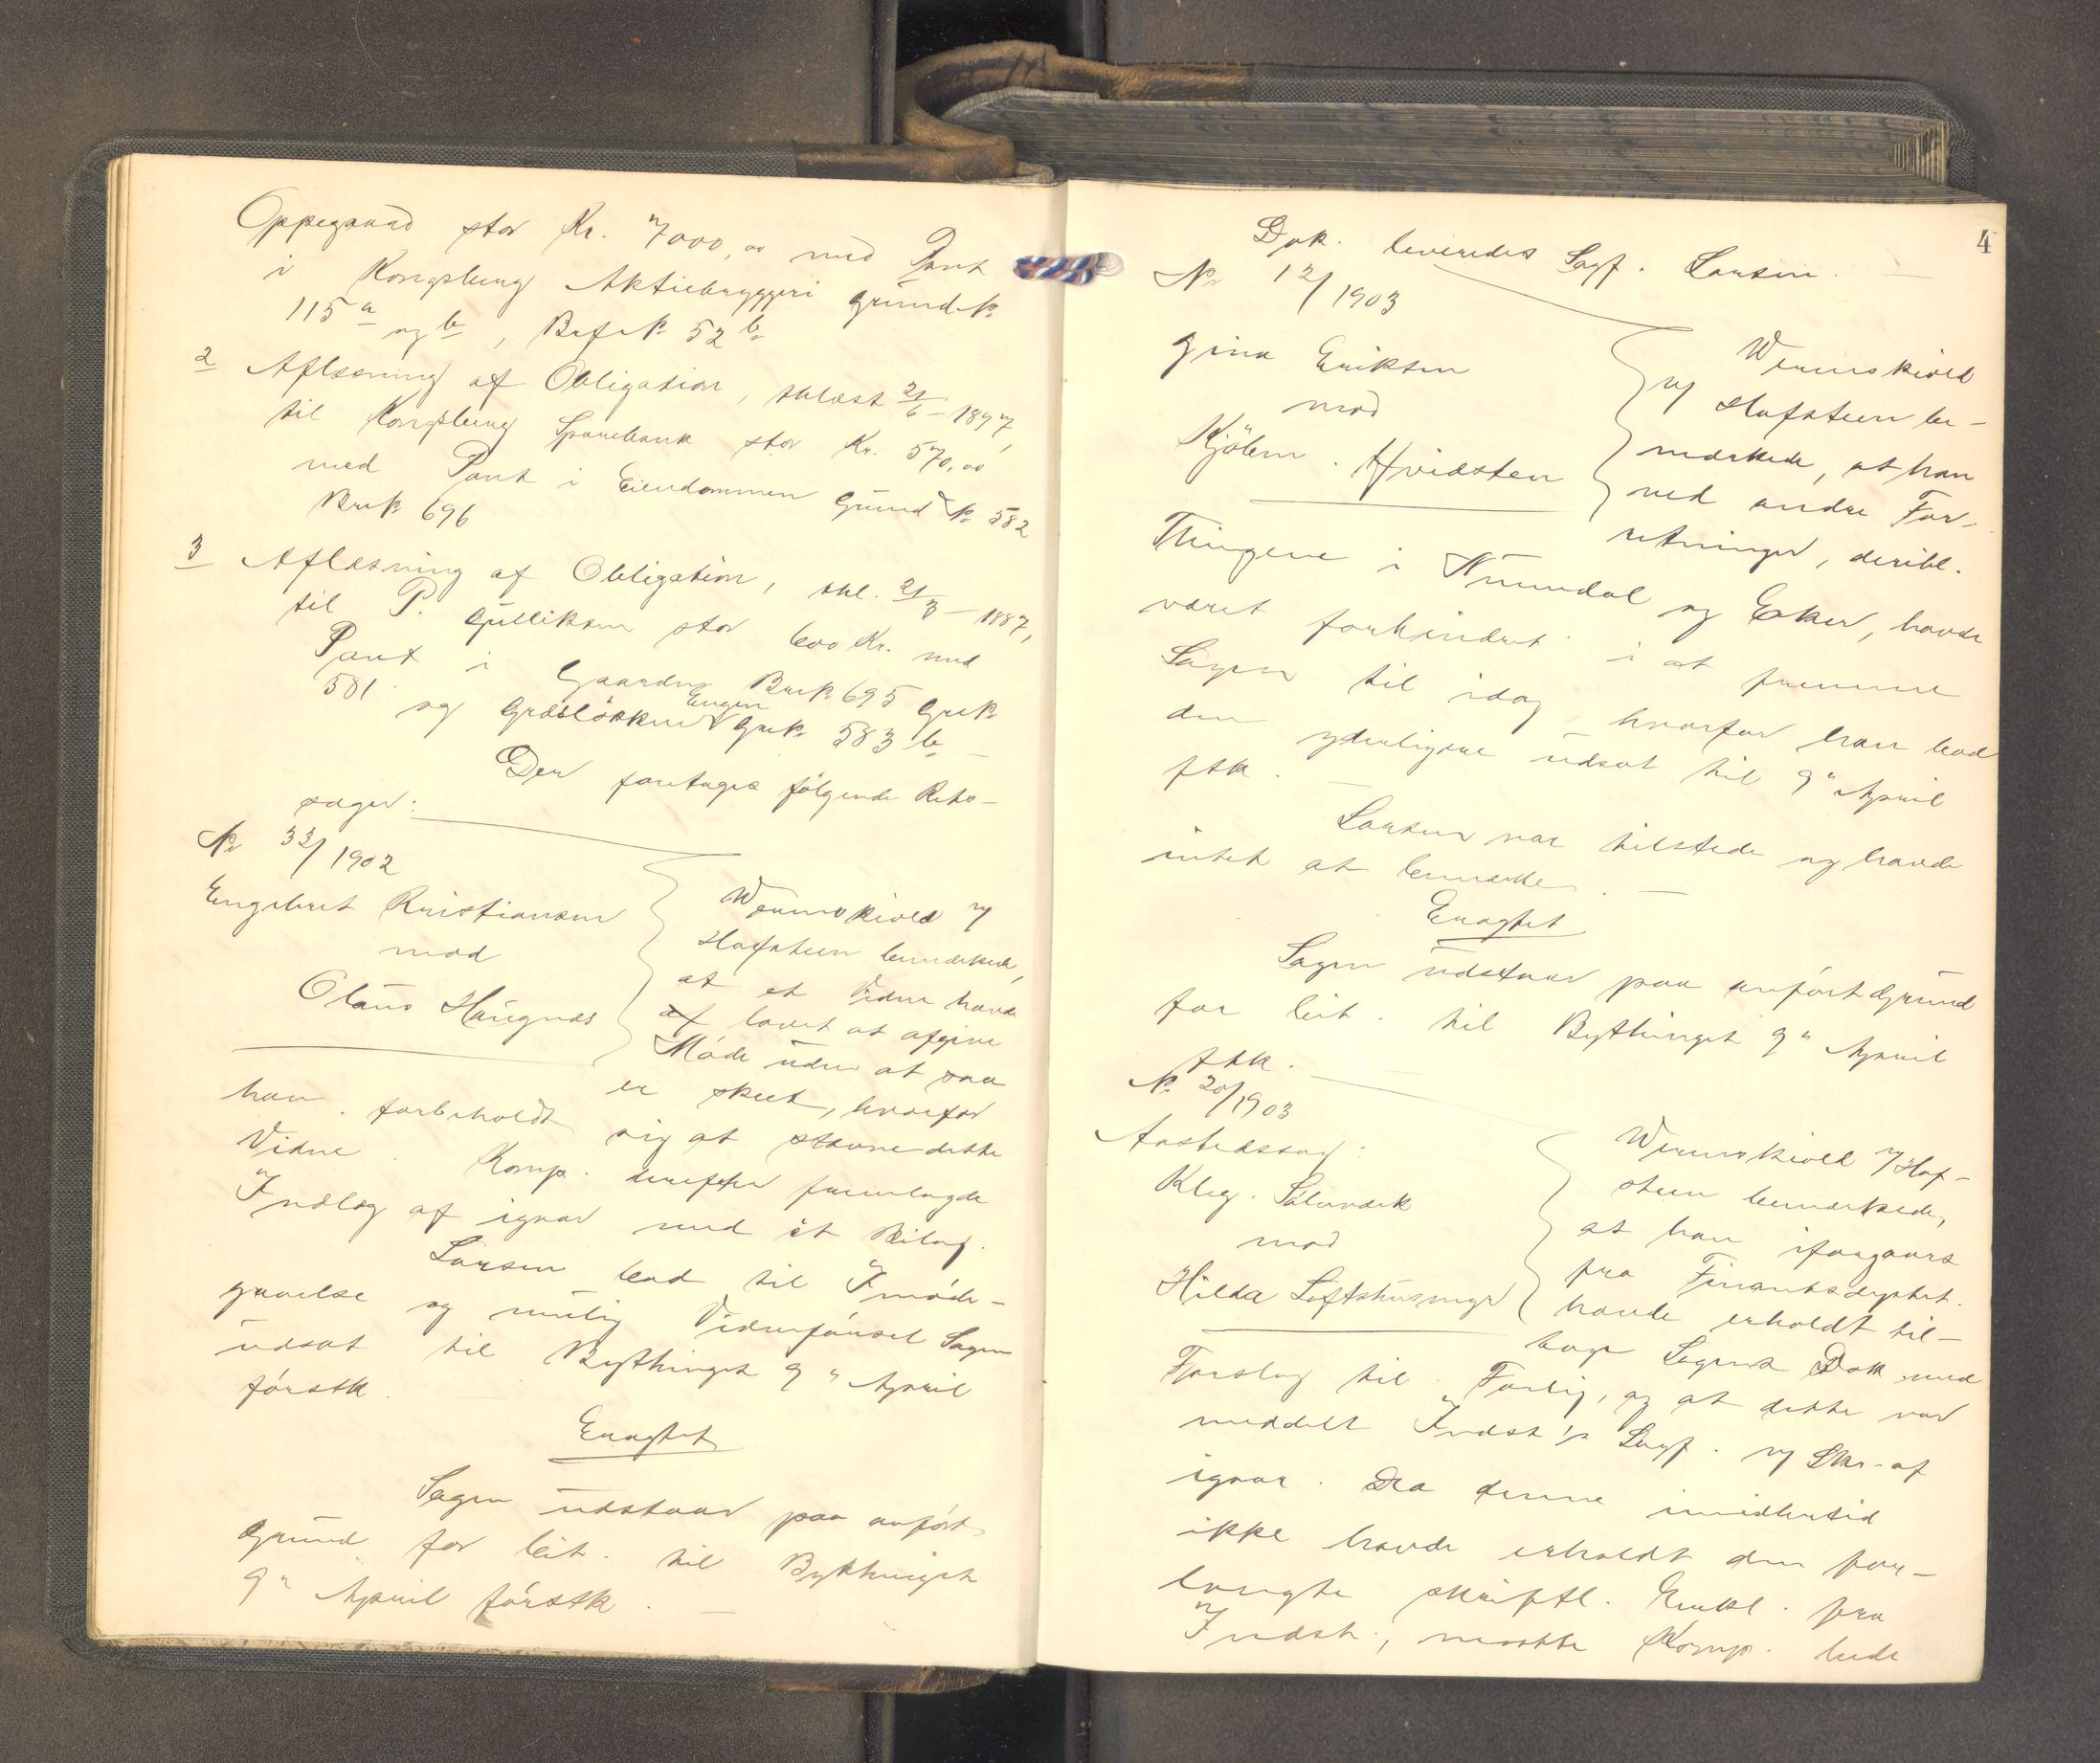 Oppegaard stor Kr. 7000,00 med Pant
i Kongsberg Aktiebryggeri GrundN.
115 a og b, Brefnr 52 b
2 Aflæsning af Obligation, thlæst 21/6 - 1897,
til Kongsberg Sparebank stor Kr. 570,00
med Pant i Eiendommen GrundN. 582
BruN. 696
3 Aflæsning af Obligation, thl. 21/3 - 1887,
til P. Gulliksen stor 600 Kr. med
Pant i Gaarden BruN. 695 GruN.
581 og Græsløkken Engen GruN. 583 b
Der foretages følgende Rets-
sager:
No 33/1902
Engebret Kristiansen
mod
Olaus Haugnæs
Werenskiold v/
Hofsteen bemærkede,
at et Vidne havde
af lovet at afgive
Møde uden at saa
er skeet, hvorfor
han forbeholdt sig at stævne dette
Vidne. Komp. derefter fremlagde
Indlæg af igaar med et Bilag.
Larsen bad til Imøde-
gaaelse og mulig Vidneførsel Sagen
udsat til Bythinget 9de April
førstk.
Eragtet
Sagen udstaar paa anført
Grund for leit. til Bythinget
9de April førstk. —
4
Dok. leveredes Sagf. Larsen. —
No 12/1903
Gina Eriksen
mod
Kjøbm. Hvidsten
Werenskiold
v/ Hofsteen be-
mærkede, at han
ved andre For-
retninger, deribl.
Thingene i Numedal og Eker, havde
været forhindret i at fremme
Sagen til idag, hvorfor han bad
den yderligere udsat til 9de April
ftk. —
Larsen var tilstede og havde
intet at bemærke. —
Eragtet
Sagen udstaar paa anført Grund
for leit. til Bythinget 9de April
ftk.
No 20/1903
Aastedssag:
Kbg. Sølvværk
mod
Hilda Loftshusmyr
Werenskiold v/ Hof-
steen bemærkede,
at han iforgaars
fra Finantsdeptet.
havde erholdt til-
bage Sagens Dok. med
Forslag til Forlig, og at dette var
meddelt Indst's Sagf. v/ Skr. af
igaar. Da denne imidlertid
ikke havde erholdt den for-
langte skriftl. Erkl. fra
Indst., maatte Komp. bede